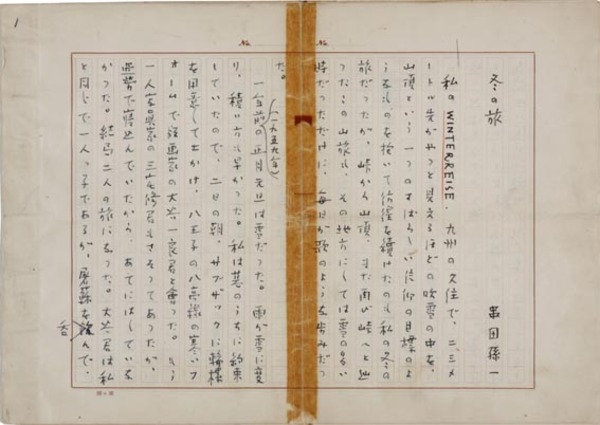 1
冬の旅
串田孫一
私の WINTERREISE。九州の久住で、二、三メ
ートル先がやっと見えるほどの吹雪の中を、
山頂という一つのすばらしい信仰の目標のよ
うなものを抱いて彷徨を続けたのも私の冬の
旅だったが、峠から山頂、また再び峠へと辿
ったこの山旅も、その地方にしては雪の多い
時だっただけに、毎日が歌のような歩みだっ
た。
(一九五九年)
一年前の正月元旦は雪だった。雨が雪に変
り、積り方も早かった。私は暮のうちに約束
していたので、二日の朝、サブザックに輪樏
を用意して出かけ、八王子の八高線の寒いフ
ォームで版画家の大谷一良君と会った。もう
一人写真家の三宅修君もさそってあったが、
で寝込んでいたから、あてにはしていな
かった。結局二人の旅になった。大谷君は私
と同じで一人っ子であるが、屠蘇をんで、
呑